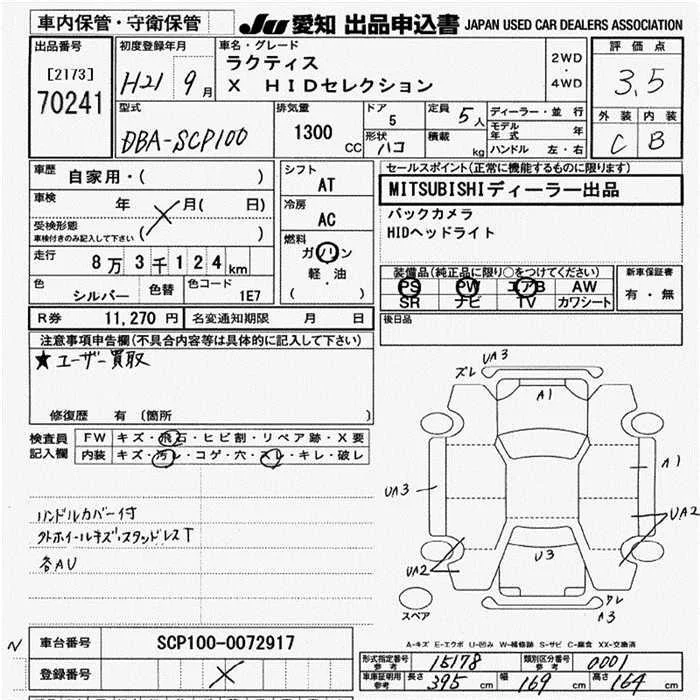 車内保管・守衛保管
JU 愛知 出品申込書 JAPAN USED CAR DEALERS ASSOCIATION
出品番号
[2173]
70241
初度登録年月
H21 9 月
車名・グレード
ラクティス
X HIDセレクション
2WD
・
4WD
評価点
3.5
外装 内装
C B
型式
DBA-SCP100
排気量
1300 CC
ドア
5
形状
ハコ
定員 5 人
積載 kg
ディーラー・並行
モデル年式 年
ハンドル 左・右
車歴 自家用・( )
車検 年 月( 日)
受検形態
車検付きのみ記入して下さい ( )
走行 8万3千124km
色 シルバー
色替
色コード 1E7
シフト
AT
冷房
AC
燃料
ガソリン
軽・油
( )
セールスポイント(正常に機能するものに限ります)
MITSUBISHIディーラー出品
バックカメラ
HIDヘッドライト
装備品(純正品に限り○をつけてください)
PS PW エアB AW
SR ナビ TV カワシート
新車保証書
有・無
R券 11,270 円
名変通知期限 月 日
後日品
注意事項申告欄(不具合内容等は具体的に記入して下さい)
★ユーザー買取
修復歴 有 (箇所 )
検査員
記入欄
FW キズ・飛石・ヒビ割・リペア跡・X要
内装 キズ・汚レ・コゲ・穴・スレ・キレ・破レ
ハンドルカバー付
タトホイールキズ・スタッドレスT
各AU
ズレ UA3
A1
A1
UA3
UA2
UA2
U3
ワレ
A3
スペア
A-キズ E-エクボ U-凹み W-補修跡 S-サビ C-腐食 XX-交換済
車台番号 SCP100-0072917
登録番号
形式指定番号 参考 15178
類別区分番号 参考 0001
車庫証明用 参考 長さ 395 cm 幅 169 cm 高さ 164 cm